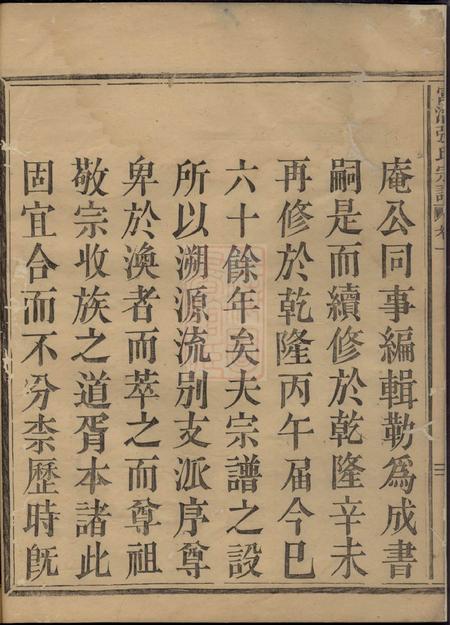 庵公同事編輯勒為成書
嗣是而續修於乾隆辛未
再修於乾隆丙午届今巳
六十餘年矣夫宗譜之設
所以溯源流别支派序尊
卑於渙者而萃之而尊祖
敬宗收族之道胥本諸此
固宜合而不分柰歷時旣